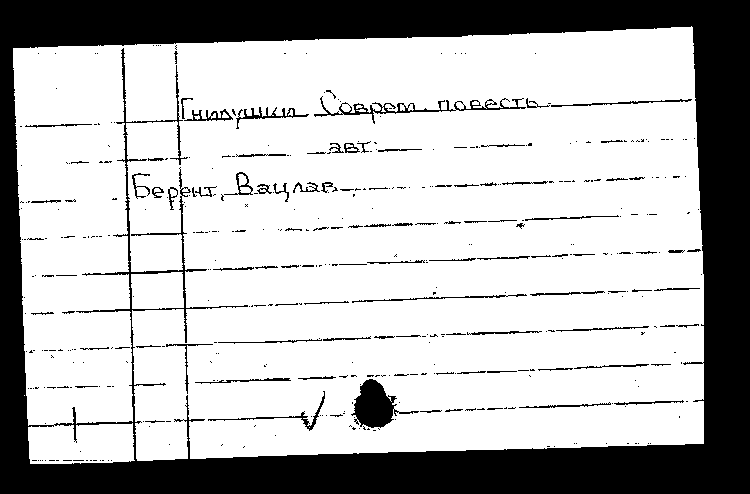 Гнилушки Соврем. повесть
авт.
Берент, Вацлав.